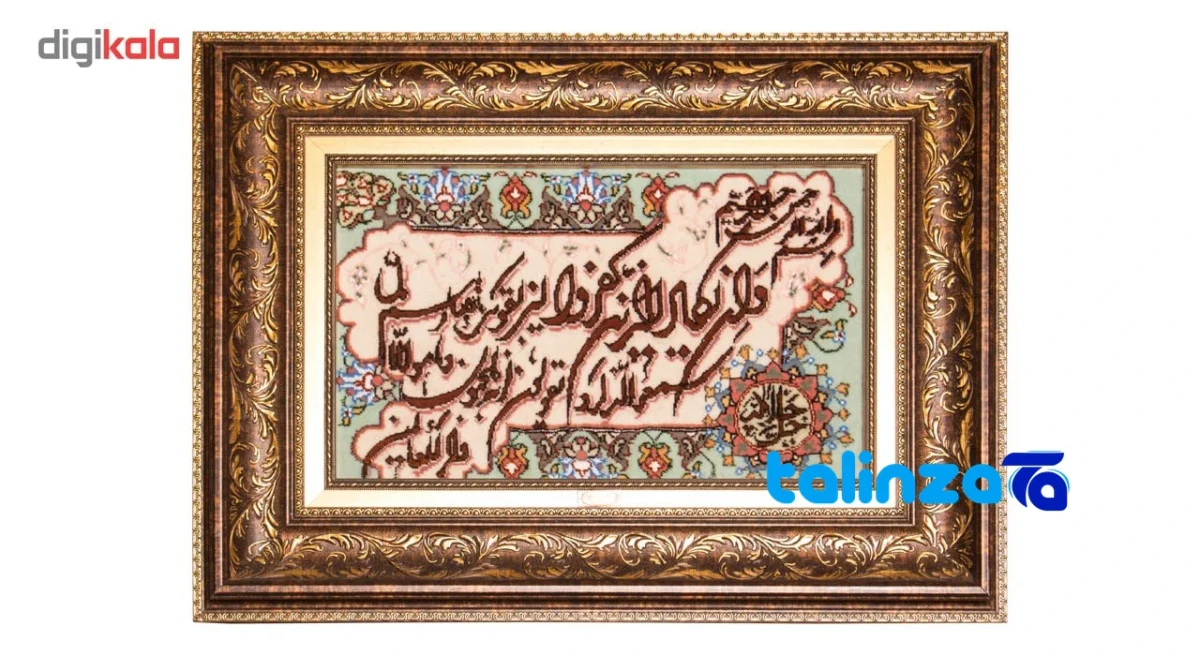 digikala
بسم الله الرحمن الرحیم
وان یکاد الذین کفروا لیزلقونک بابصارهم لما
سمعوا الذکر و یقولون انه لمجنون وما هو الا
ذکر للعالمین
جل جلاله
talinza
Ta